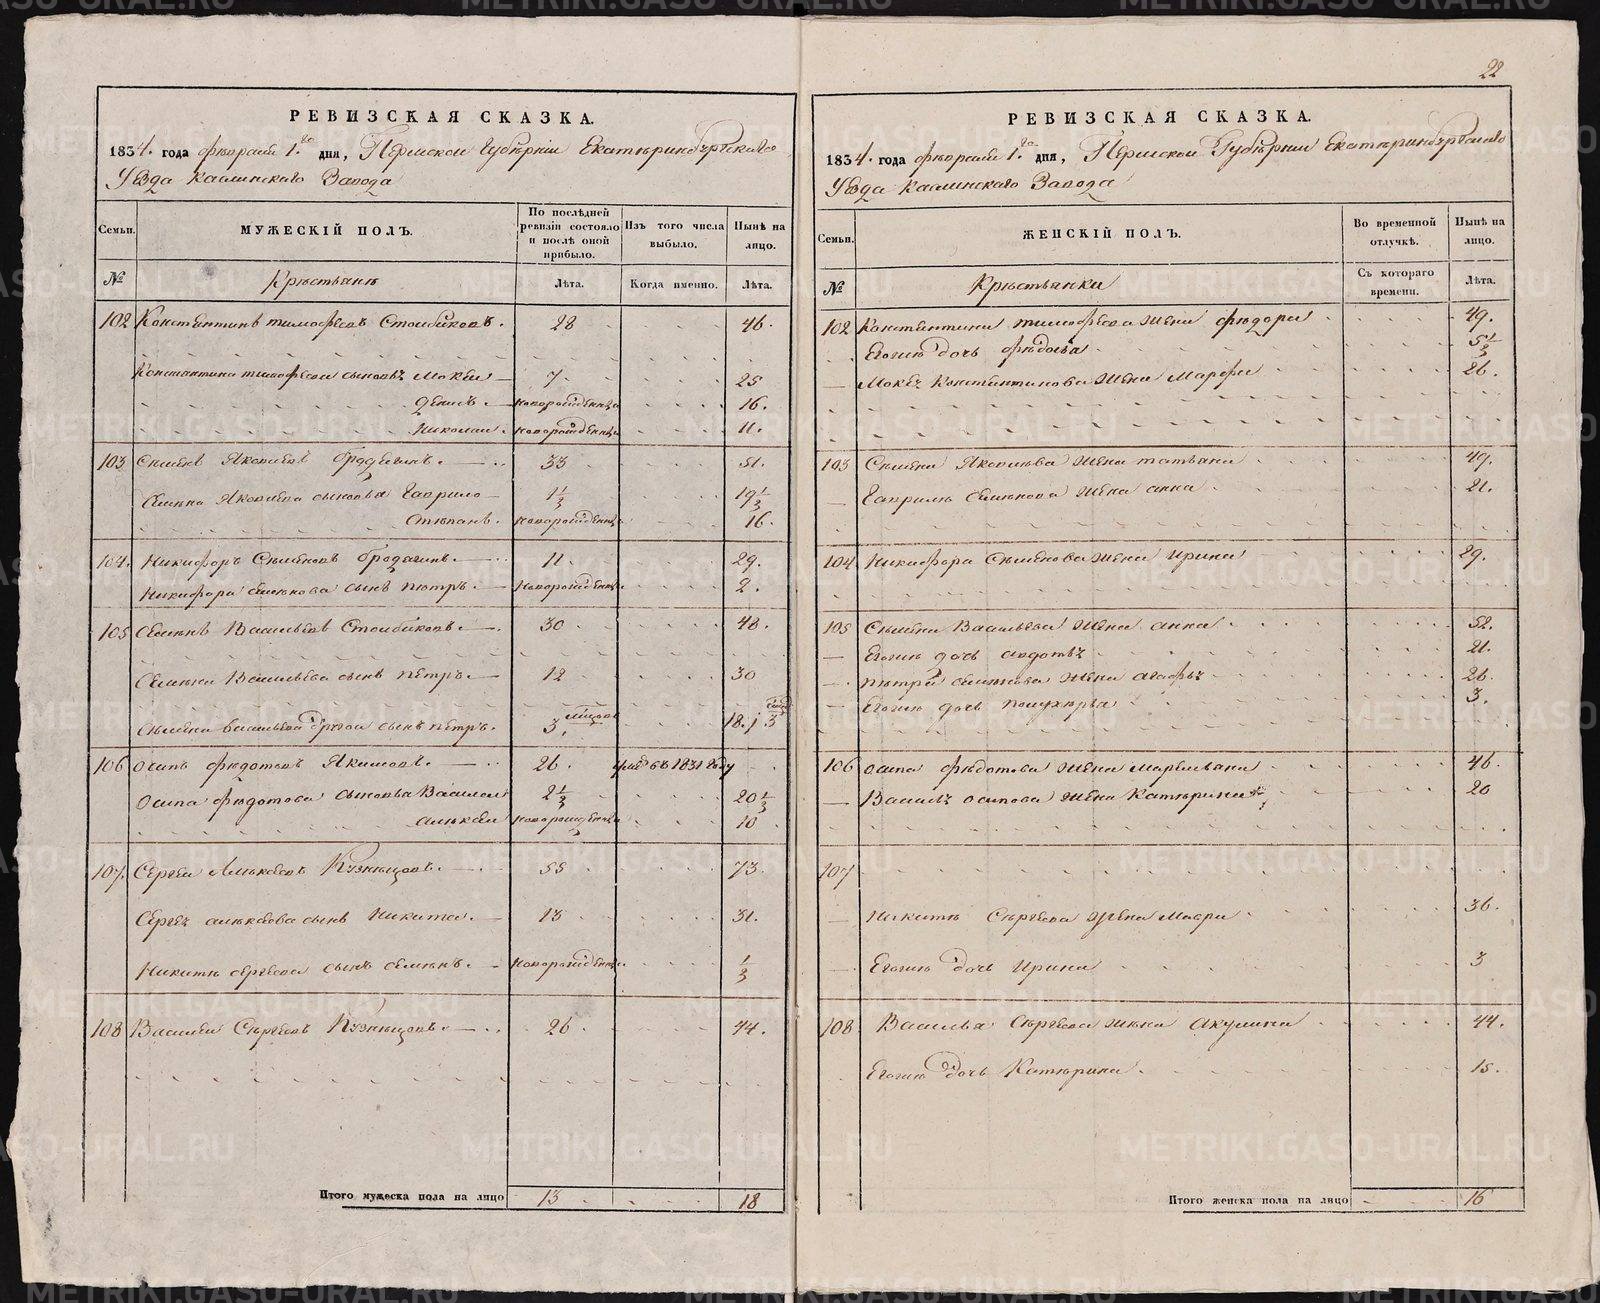 22
РЕВИЗСКАЯ СКАЗКА.
1834. года февраля 1.го дня, Пермской Губерніи Екатеринбургскаго
Уезда Каслинскаго Завода
Семьи.
МУЖЕСКІЙ ПОЛЪ.
По послѣдней ревизіи состояло и послѣ оной прибыло.
Изъ того числа выбыло.
Нынѣ на лицо.
№
Крестьяне
Лѣта.
Когда именно.
Лѣта.
102 Константинъ тимофеевъ 28 46.
Константина тимофеева сыновья Мокей 7 25
Денисъ. новорожденъ 16.
Николай. новорожденъ 11.
103 Семенъ Яковлевъ 33 51.
Семена Яковлева сыновья Гаврило 1 1/3 19 1/3
Степанъ. новорожденъ 16.
104. Никифоръ Семеновъ 11. 29.
Никифора Семенова сынъ Петръ. новорожденъ 2.
105 Семенъ Васильевъ 30 48.
Семена Васильева сынъ Петръ. 12 30
Семена Васильева другой сынъ Петръ. 3 18.
106 Осипъ Федотовъ Якимовъ. 26. 1831 году
Осипа Федотова сыновья Василей 2 1/3 20 1/3
Алексей новорожденъ 10
107. Сергей Алексеевъ Кузнецовъ. 55 73.
Сергея Алексеева сынъ Никита. 13 31.
Никиты Сергеева сынъ Семенъ. новорожденъ 1/3
108 Василей Сергеевъ Кузнецовъ. 26 44.
Итого мужеска пола на лицо 13 18
РЕВИЗСКАЯ СКАЗКА.
1834. года февраля 1.го дня, Пермской Губерніи Екатеринбургскаго
Уезда Каслинскаго Завода
Семьи.
ЖЕНСКІЙ ПОЛЪ.
Во временной отлучкѣ.
Нынѣ на лицо.
№
Крестьянки
Съ котораго времени.
Лѣта.
102 Константина тимофеева жена Федора 49.
Егоже дочь Федосья 5 1/3
Мокея Константинова жена Марфа 26.
103 Семена Яковлева жена татьяна 49.
Гаврилы Семенова жена анна 21.
104 Никифора Семенова жена ирина 29.
105 Семена Васильева жена анна 52.
Егоже дочь авдотья 21.
Петра Семенова жена агафья 26.
Егоже дочь 3.
106 осипа Федотова жена 46.
Василья осипова жена Катерина 20
107
Никиты Сергеева жена Мавра 36.
Егоже дочь ирина 3
108 Василья Сергеева жена акулина 44.
Егоже дочь Катерина 15.
Итого женска пола на лицо 16
METRIKI.GASO-URAL.RU